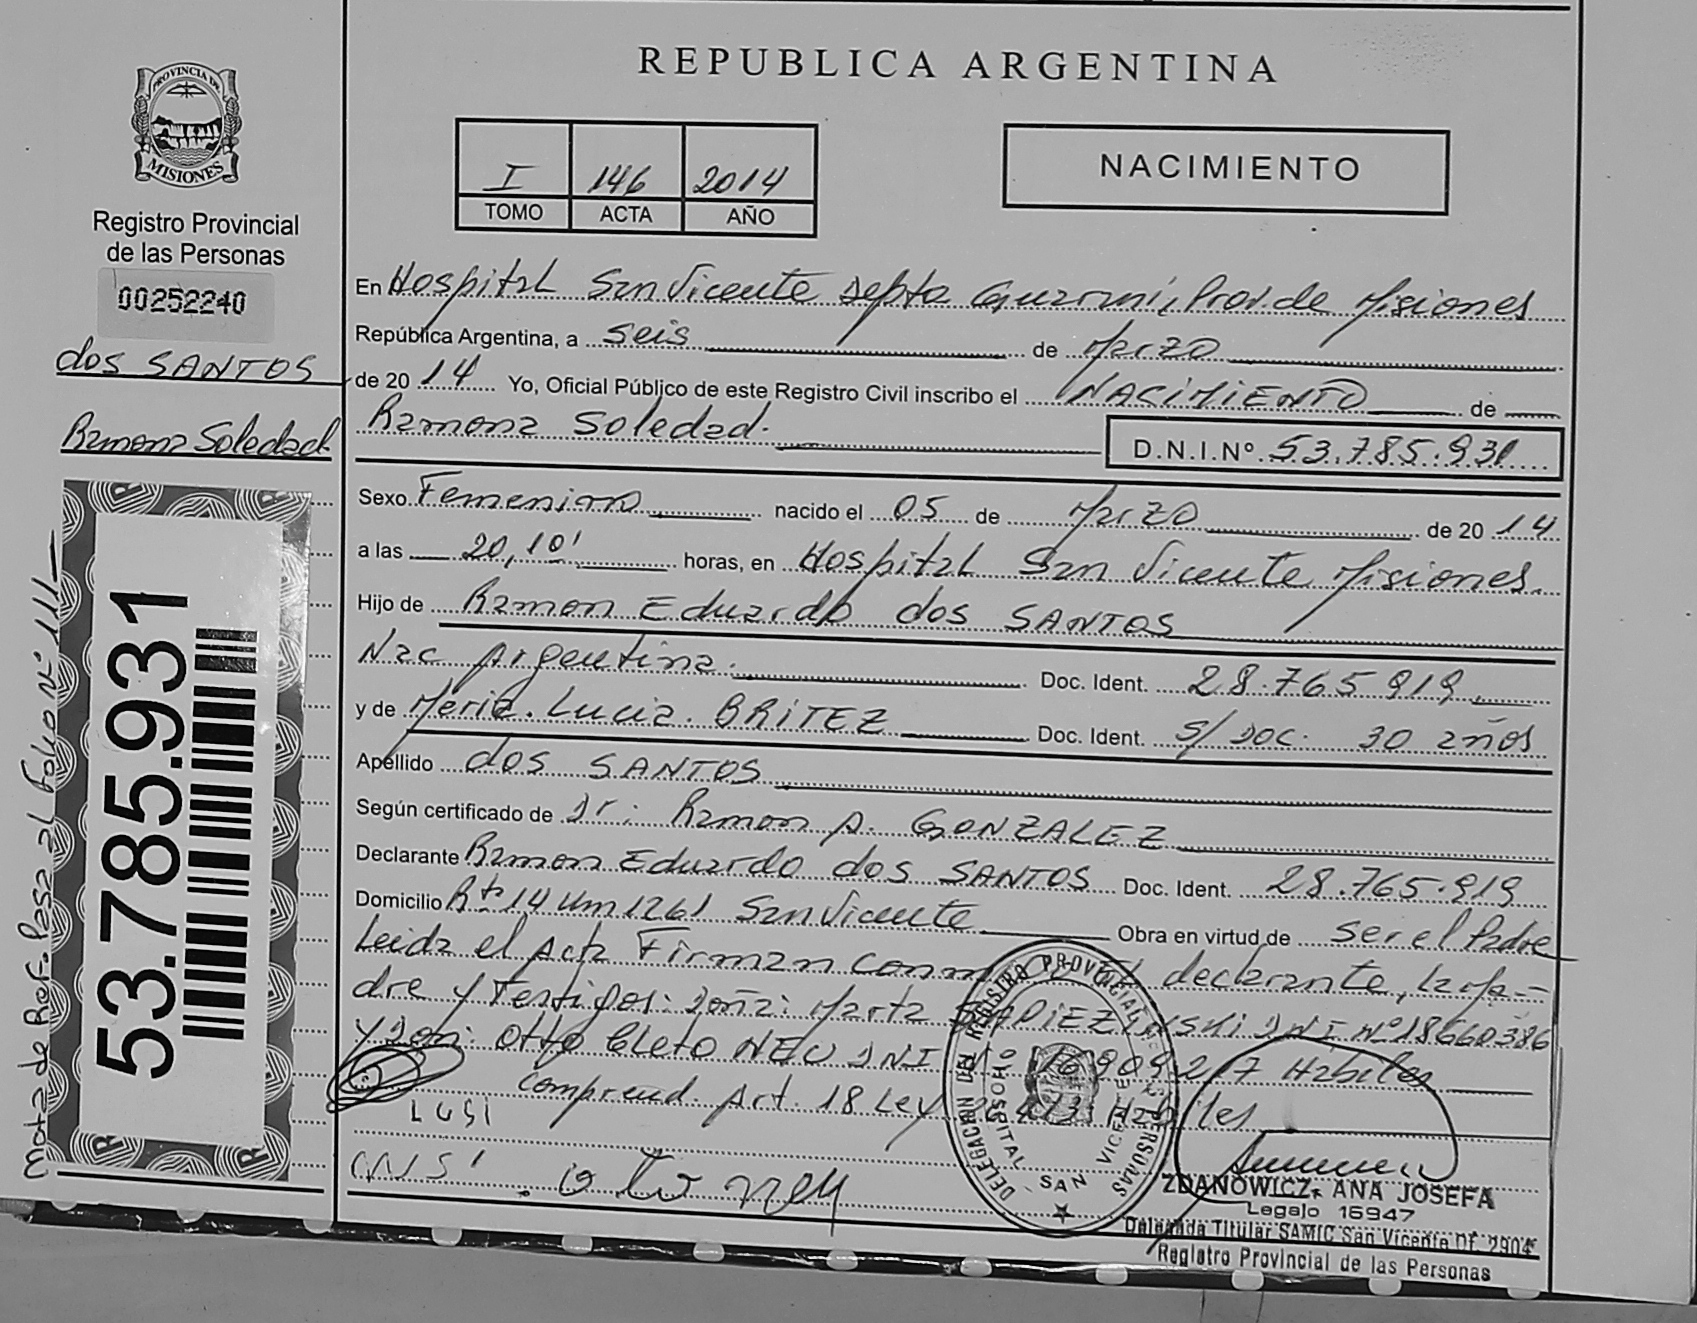 PROVINCIA DE
MISIONES
Registro Provincial
de las Personas
00252240
dos SANTOS
Ramona Soledad
Nota de Ref. Pasa al folio Nº 111
53.785.931
REPUBLICA ARGENTINA
I 146 2014
TOMO ACTA AÑO
NACIMIENTO
En Hospital San Vicente Depto Guaraní, Prov. de Misiones
República Argentina, a seis de Marzo
de 20 14 Yo, Oficial Público de este Registro Civil inscribo el NACIMIENTO de
Ramona Soledad.
D.N.I.Nº 53.785.931
Sexo Femenino nacido el 05 de Marzo de 20 14
a las 20,10' horas, en Hospital San Vicente Misiones.
Hijo de Ramon Eduardo dos SANTOS
Nac Argentina. Doc. Ident. 28.765.919
y de Maria. Lucia. BRITEZ Doc. Ident. S/ DOC. 30 años
Apellido dos SANTOS
Según certificado de Dr: Ramon A. GONZALEZ
Declarante Ramon Eduardo dos SANTOS Doc. Ident. 28.765.919
Domicilio Rta 14 Km 1261 San Vicente Obra en virtud de ser el Padre
Leida el Acta Firman conm declarante, la Ma-
dre y Testigos: Doña: Marta DNI Nº 18660386
y Don: Otto Cleto NEU DNI Nº 16909217 Habiles
Comprend. Art. 18 Ley Habiles
LUSI
otto ney
DELEGACION DEL REGISTRO PROVINCIAL DE LAS PERSONAS
HOSPITAL SAN VICENTE
ZDANOWICZ, ANA JOSEFA
Legajo 16947
Delegada Titular SAMIC San Vicente Df. 2904
Registro Provincial de las Personas